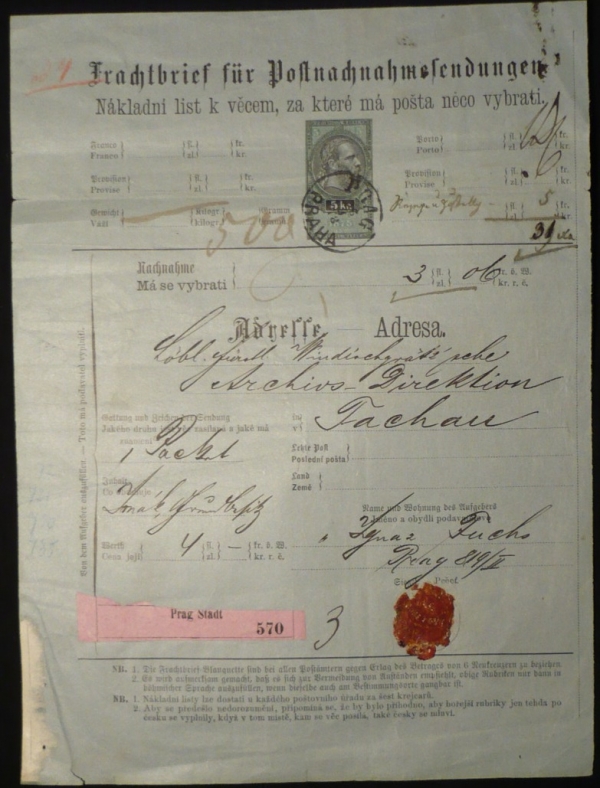 Frachtbrief für Postnachnahmesendungen.
Nákladní list k věcem, za které má pošta něco vybrati.
Franco fl. kr.
Franco zl. kr.
Porto fl. kr.
Porto zl. kr.
Provision fl. kr.
Provise zl. kr.
Provision fl. kr.
Provise zl. kr. 5
Gewicht Kilogr. Gramm
Váží kilogr.
500
PRAG
PRAHA
Nachnahme 3 fl. 06 kr. ö. W.
Má se vybrati zl. kr. r. č.
Adresse — Adresa.
Löbl. fürstl. Windischgrätz'sche
Archivs-Direktion
in Tachau
v
Gattung und Zeichen der Sendung
1 Packet
Letzte Post
Poslední pošta
Land
Země
Inhalt
Name und Wohnung des Aufgebers
Jméno a obydlí podavatelovo
Ignaz Fuchs
Prag 819/II
Werth 4 fl. — kr. ö. W.
Cena její zl. kr. r. č.
Von dem Aufgeber auszufüllen. — Tuto má podavatel vyplniti.
Prag Stadt
570
3
NB. 1. Die Frachtbrief-Blanquette sind bei allen Postämtern gegen Erlag des Betrages von 6 Neukreuzern zu beziehen
2. Es wird aufmerksam gemacht, daß es sich zur Vermeidung von Anständen empfiehlt, obige Rubriken nur dann in
böhmischer Sprache auszufüllen, wenn dieselbe auch am Bestimmungsorte gangbar ist.
NB. 1. Nákladní listy lze dostati u každého poštovního úřadu za šest krejcarů.
2. Aby se předešlo nedorozumění, připomíná se, že by bylo příhodno, aby hořejší rubriky jen tehda po
česku se vyplnily, když v tom místě, kam se věc posílá, také česky se mluví.